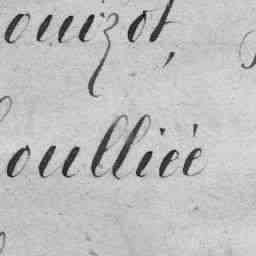 ouizot,
oulliéé